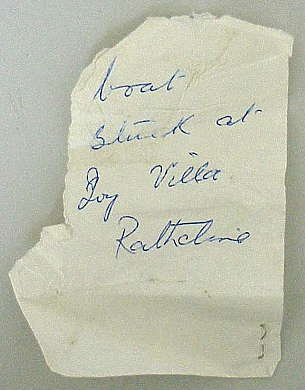 boat
stuck at
Joy Villa
Rathcline